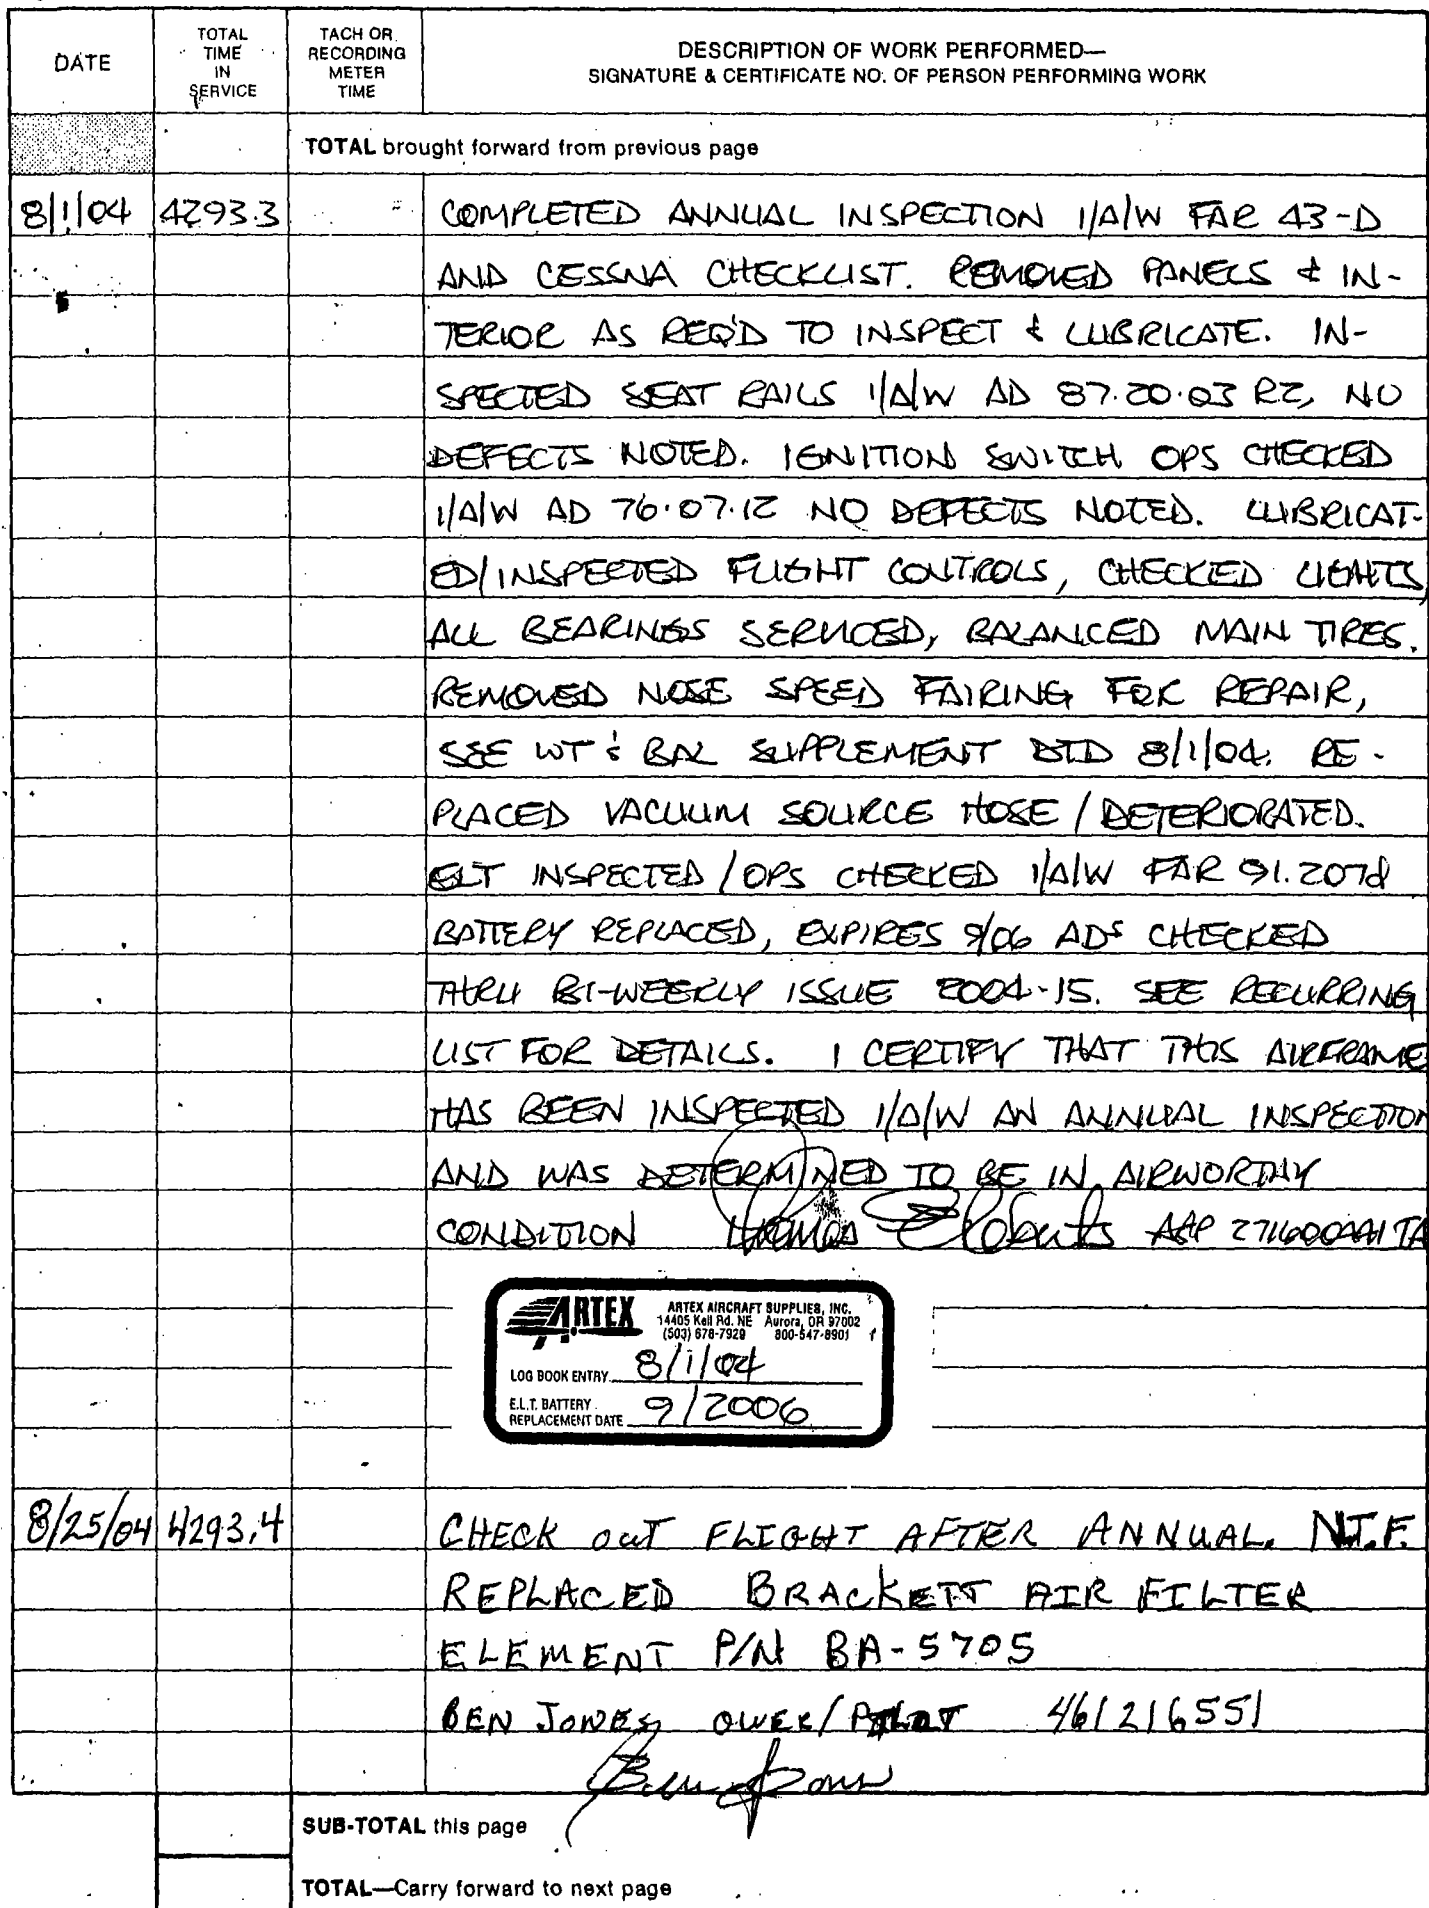 DATE
TOTAL TIME IN SERVICE
TACH OR RECORDING METER TIME
DESCRIPTION OF WORK PERFORMED—
SIGNATURE & CERTIFICATE NO. OF PERSON PERFORMING WORK
TOTAL brought forward from previous page
8/1/04 4293.3 COMPLETED ANNUAL INSPECTION I/A/W FAR 43-D
AND CESSNA CHECKLIST. REMOVED PANELS & IN-
TERIOR AS REQ'D TO INSPECT & LUBRICATE. IN-
SPECTED SEAT RAILS I/A/W AD 87.20.03 R2, NO
DEFECTS NOTED. IGNITION SWITCH OPS CHECKED
I/A/W AD 76.07.12 NO DEFECTS NOTED. LUBRICAT-
ED/INSPECTED FLIGHT CONTROLS, CHECKED LIGHTS,
ALL BEARINGS SERVICED, BALANCED MAIN TIRES.
REMOVED NOSE SPEED FAIRING FOR REPAIR,
SEE WT & BAL SUPPLEMENT DTD 8/1/04. RE-
PLACED VACUUM SOURCE HOSE / DETERIORATED.
ELT INSPECTED / OPS CHECKED I/A/W FAR 91.207d
BATTERY REPLACED, EXPIRES 9/06 ADS CHECKED
THRU BI-WEEKLY ISSUE 2004-15. SEE RECURRING
LIST FOR DETAILS. I CERTIFY THAT THIS AIRFRAME
HAS BEEN INSPECTED I/A/W AN ANNUAL INSPECTION
AND WAS DETERMINED TO BE IN AIRWORTHY
CONDITION Thomas E Roberts A&P
ARTEX
ARTEX AIRCRAFT SUPPLIES, INC.
14405 Keil Rd. NE Aurora, OR 97002
(503) 678-7929 800-547-8901
LOG BOOK ENTRY 8/1/04
E.L.T. BATTERY
REPLACEMENT DATE 9/2006
8/25/04 4293.4 CHECK OUT FLIGHT AFTER ANNUAL. N.T.F.
REPLACED BRACKETT AIR FILTER
ELEMENT P/N BA-5705
BEN JONES, OWER/PILOT 461216551
Ben Jones
SUB-TOTAL this page
TOTAL—Carry forward to next page